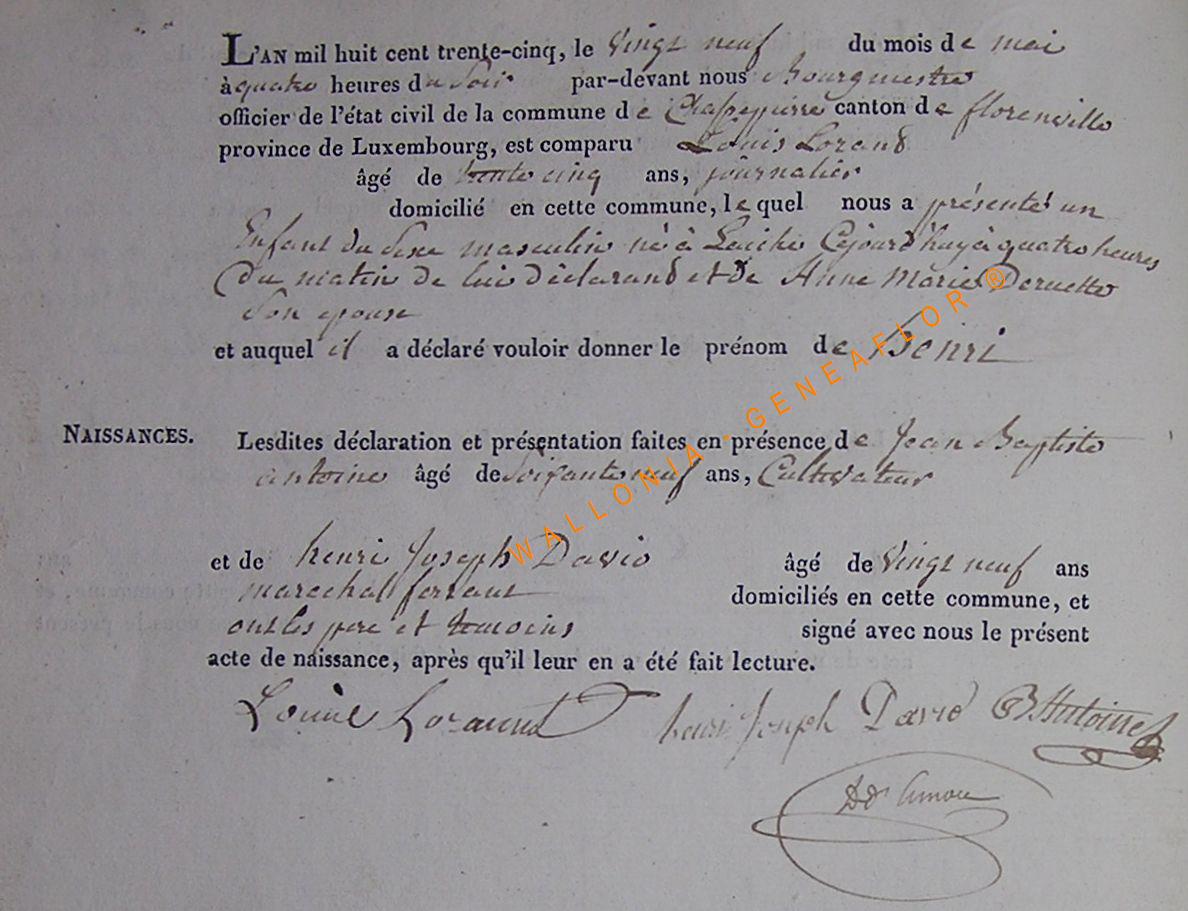 L'AN mil huit cent trente-cinq, le vingt neuf du mois de mai
à quatre heures du soir par-devant nous Bourgmestre
officier de l'état civil de la commune de Chassepierre canton de florenville
province de Luxembourg, est comparu Louis Lorand
âgé de trente cinq ans, journalier
domicilié en cette commune, le quel nous a présenté un
Enfant du sexe masculin né à Laiche Cejourd'huy à quatre heures
Du matin de lui déclarand et de Anne Marie
Son epouse
et auquel il a déclaré vouloir donner le prénom de henri
NAISSANCES. Lesdites déclaration et présentation faites en présence de Jean Baptiste
antoine âgé de soixante neuf ans, Cultivateur
et de henri Joseph David âgé de vingt neuf ans
marechal ferrant domiciliés en cette commune, et
ont les pere et temoins signé avec nous le présent
acte de naissance, après qu'il leur en a été fait lecture.
Lorand henri Joseph David JB Antoine
WALLONIA - GENEAFLOR ®